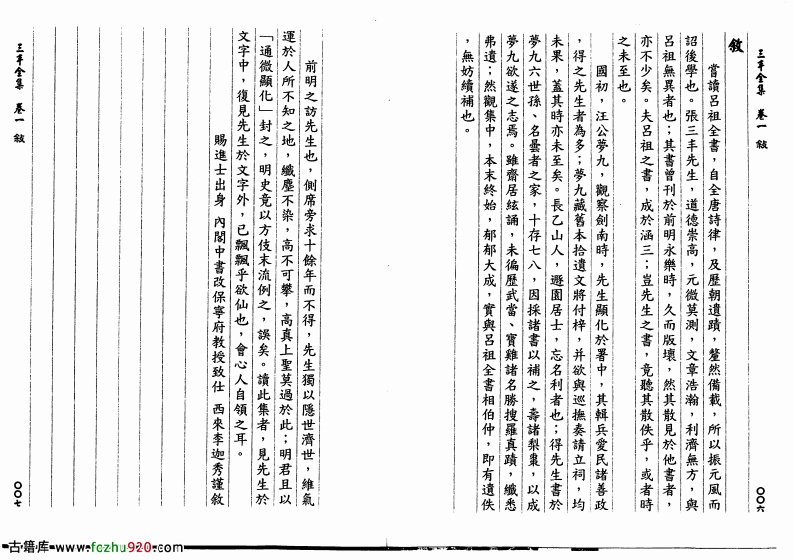 三丰全集　卷一　敘
〇〇六
敘
嘗讀呂祖全書，自全唐詩律，及歷朝遺蹟，釐然備載，所以振元風而
詔後學也。張三丰先生，道德崇高，元微莫測，文章浩瀚，利濟無方，與
呂祖無異者也；其書曾刊於前明永樂時，久而版壞，然其散見於他書者，
亦不少矣。夫呂祖之書，成於涵三；豈先生之書，竟聽其散佚乎，或者時
之未至也。
國初，汪公夢九，觀察劍南時，先生顯化於署中，其輯兵愛民諸善政
，得之先生者為多；夢九藏舊本拾遺文將付梓，并欲與巡撫奏請立祠，均
未果，蓋其時亦未至矣。長乙山人，遯園居士，忘名利者也；得先生書於
夢九六世孫、名曇者之家，十存七八，因採諸書以補之，壽諸梨棗，以成
夢九欲遂之志焉。雖齋居絃誦，未徧歷武當、寶雞諸名勝搜羅真蹟，纖悉
弗遺；然觀集中，本末終始，郁郁大成，實與呂祖全書相伯仲，即有遺佚
，無妨續補也。
前明之訪先生也，側席旁求十餘年而不得，先生獨以隱世濟世，維氣
運於人所不知之地，纖塵不染，高不可攀，高真上聖莫過於此；明君且以
「通微顯化」封之，明史竟以方伎末流例之，誤矣。讀此集者，見先生於
文字中，復見先生於文字外，已飄飄乎欲仙也，會心人自領之耳。
賜進士出身　內閣中書改保寧府教授致仕　西來李迦秀謹敘
三丰全集　卷一　敘
〇〇七
古籍库 www.fozhu920.com